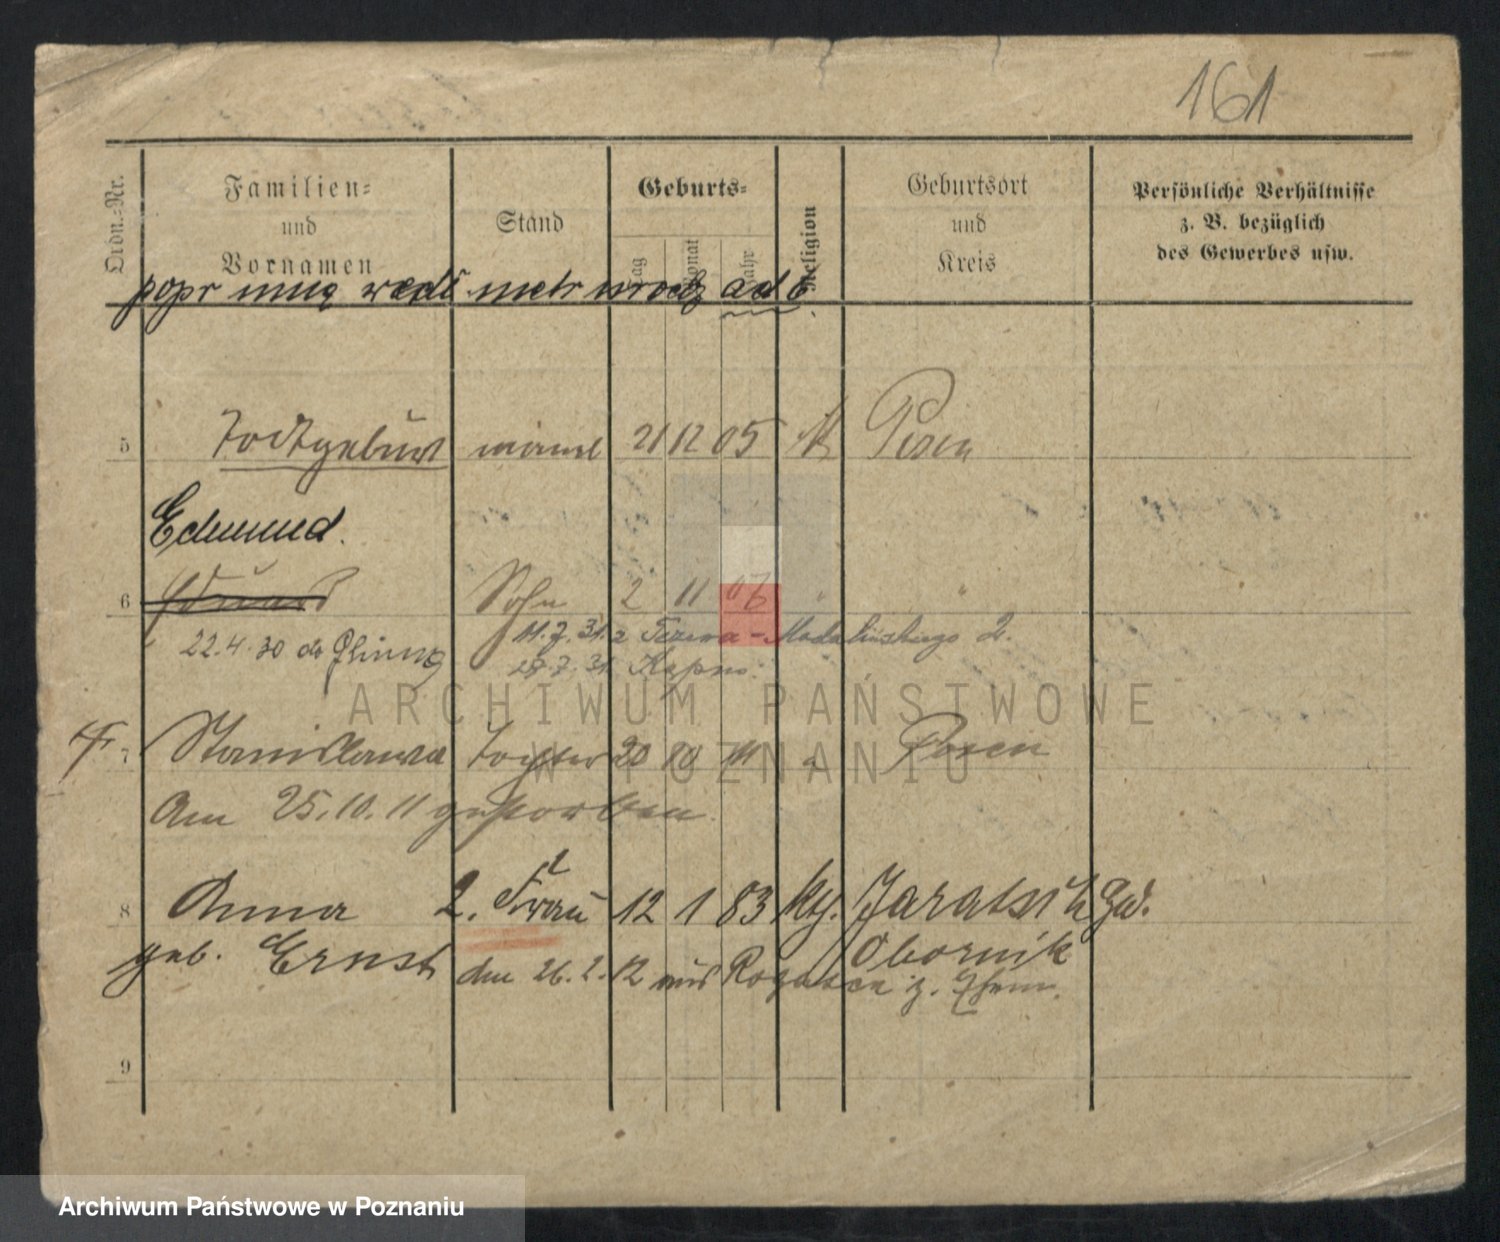 161
Ordn.-Nr.
Familien-
und
Vornamen
Stand
Geburts-
Tag
Monat
Jahr
Religion
Geburtsort
und
Kreis
Persönliche Verhältnisse
z. B. bezüglich
des Gewerbes usw.
popr imię wedł metr urodz ad 6.
5 Todtgeburt männl 21 12 05 Posen
Edmund.
6 Eduard Sohn 2 11 06 " "
22.4.30 do Gdyni 11.7.31 z Madalińskiego 2.
27.7.31.
7 Stanislawa Tochter 20 10 11 " Posen
Am 25.10.11 gestorben.
8 Anna 2. Frau 12 1 83 Jaratsch Gd.
geb. Ernst Obornik
den 26.2.12 aus Rogasen z.
9
ARCHIWUM PAŃSTWOWE
W POZNANIU
Archiwum Państwowe w Poznaniu